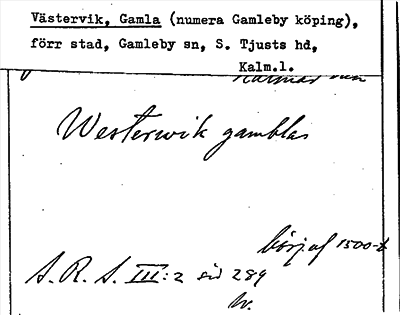 Västervik, Gamla (numera Gamleby köping),
förr stad, Gamleby sn, S. Tjusts hd,
Kalm.l.
Westerwik gamblas
börj af 1500-t
S. R. S. III:2 sid 289